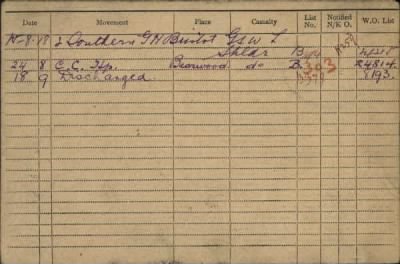 Date Movement Place Casualty List No. Notified N/K O. W.O. List
8 18 2 Southern G H Bristol G S W L
Shldr B
24 8 C. C. Hp. Bearwood do B 393 R4814
18 9 Discharged 8193.